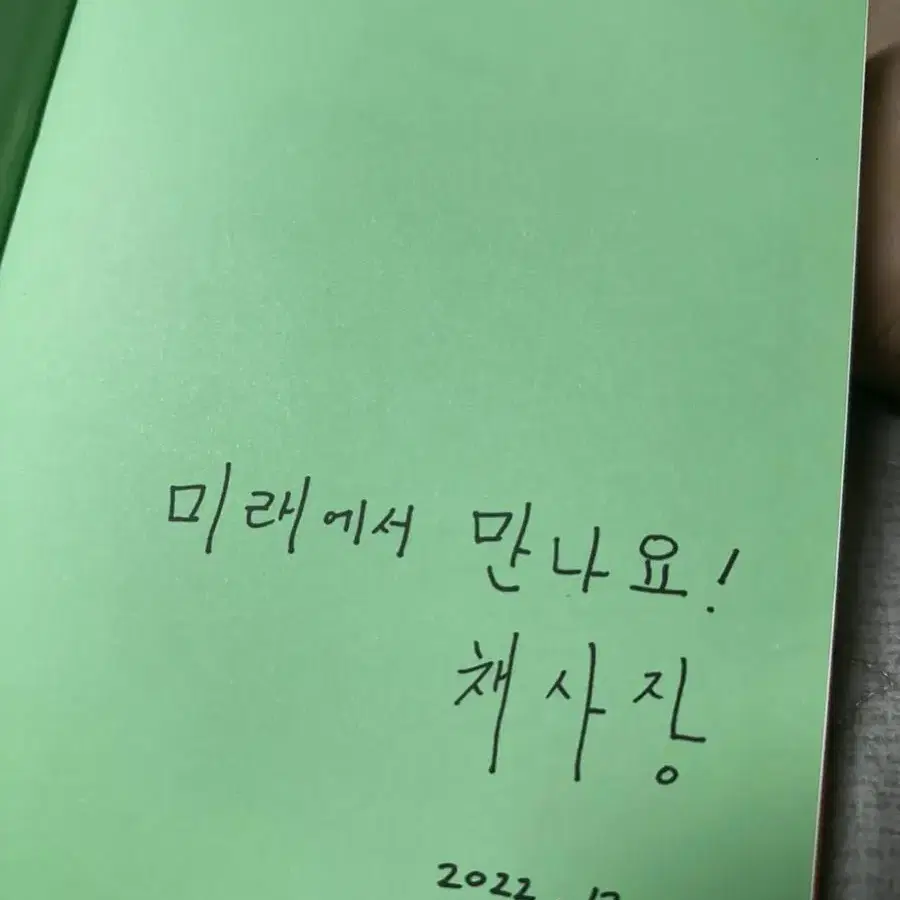 미래에서 만나요!
채사장
2022